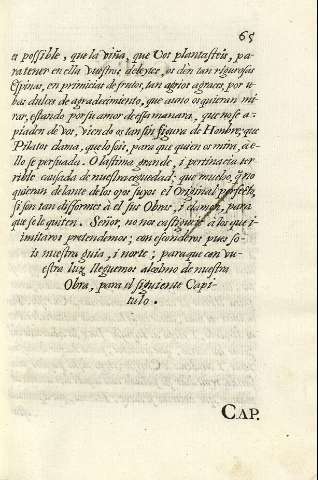 65
es possible, que la viña, que Vos plantasteis, pa-
ra tener en ella vuestros deleytes, os dèn tan rigurosas
Espinas, en primicias de frutos, tan agrios agraces, por u-
bas dulces de agradecimiento, que aun no os quieran mi-
rar, estando por su amor de essa manera, que no se a-
piaden de vos, viendo os tan sin figura de Hombre, que
Pilatos clama, que lo sois, para que quien os mira, à e-
llo se persuada. O lastima grande, i pertinacia ter-
rible causada de nuestra ceguedad; que mucho, q̃ no
quieran delante de los ojos suyos el Original perfecto,
si son tan disformes à èl sus Obras, i clamen, para
que se le quiten. Señor, no nos castigueis à los que i-
imitaros pretendemos; con esconderos pues so-
is nuestra guia, i norte; para que con vu-
estra luz lleguemos al colmo de nuestra
Obra, para el siguiente Capi-
tulo.
CAP.